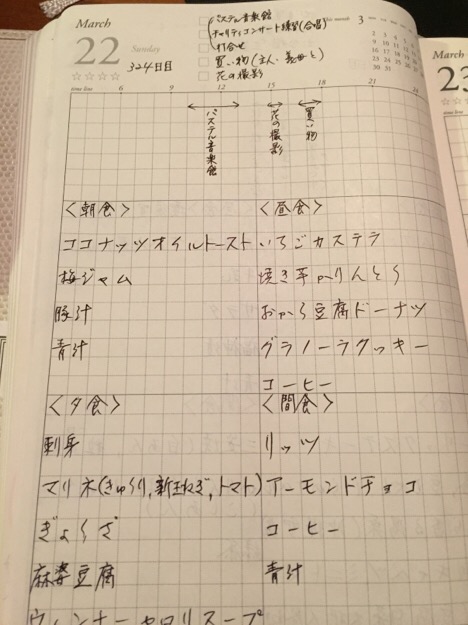 March
22
Sunday
324日目
パステル音楽館
チャリティコンサート練習(合唱)
打合せ
買い物(主人・義母と)
花の撮影
3
23
time line 6 9 12 15 18 21
パステル音楽館
花の撮影
買い物
〈朝食〉
ココナッツオイルトースト
梅ジャム
豚汁
青汁
〈昼食〉
いちごカステラ
焼き芋かりんとう
おから豆腐ドーナツ
グラノーラクッキー
コーヒー
〈夕食〉
刺身
マリネ(きゅうり,新玉ねぎ,トマト)
ぎょうざ
麻婆豆腐
ウィンナーセロリスープ
〈間食〉
リッツ
アーモンドチョコ
コーヒー
青汁